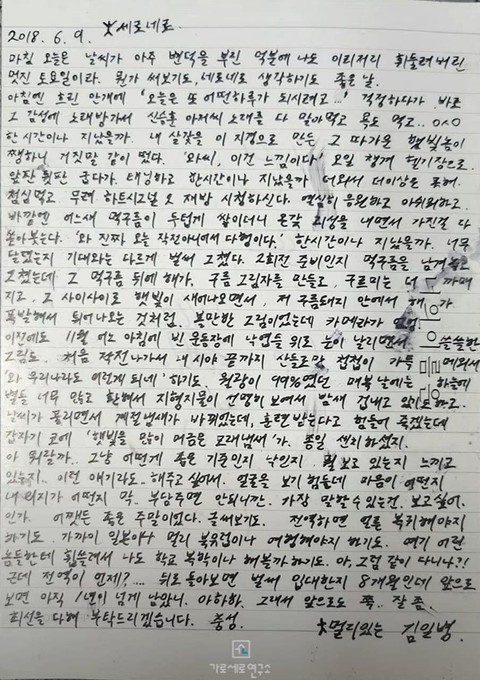 ★세로네로.
2018. 6. 9.
마침 오늘은 날씨가 아주 변덕을 부린 덕분에 나도 이리저리 휘둘려버린
멋진 토요일이라. 뭔가 써보기도, 세로네로 생각하기도 좋은 날.
아침엔 흐린 안개에 '오늘은 또 어떤하루가 되시려고...' 걱정하다가 바로
그 감성에 노래방가서 신승훈 아저씨 노래를 다 말아먹고 욕도 먹고.. ㅇㅅㅇ
한시간이나 지났을까. 내 살갗을 이 지경으로 만든 그 따가운 햇빛놈이
쨍하니 거짓말 같이 떴다. '와씨, 이건 느낌이다' 오일 챙겨 헬기장으로.
앞판 뒷판 굽다가. 태닝하고 한시간이나 지났을까 더워서 더이상은 못해.
점심먹고 무려 하트시그널 오 재방 시청하신다. 열심히 응원하고 아쉬워하고.
바깥엔 어느새 먹구름이 두텁게 쌓이더니 온갖 괴성을 내면서 가진걸 다
쏟아붓는다. '와 진짜 오늘 작전아니어서 다행이다.' 한시간이나 지났을까. 너무
달랬는지 기대와는 다르게 벌써 그쳤다. 2회전 준비인지 먹구름을 남겨놓고
그쳤는데 그 먹구름 뒤에 해가. 구름 그림자를 만들고, 구름끼는 더 까매
지고, 그 사이사이로 햇빛이 새어나오면서, 저 구름돼지 안에서 해가
폭발해서 튀어나오는 것처럼. 볼만한 그림이었는데 카메라가 없어
이전에도 11월 어느 아침에 빈 운동장에 낙엽들 위로 눈이 날리면서 쓸쓸한
그림도. 처음 작전나가서 내 시야 끝까지 산등로망 첩첩이 가득 메워서
'와 우리나라도 이렇게 되네' 하기도. 월광이 99%였던 매복날에는 하늘에
별들 너무 많고 환해서 지형지물이 선명히 보여서 밤새 겁내고 있기도하고.
날씨가 풀리면서 계절냄새가 바뀌었는데, 훈련받는다고 힘들어 죽겠는데
갑자기 코에 '햇빛을 많이 머금은 모래냄새'가. 종일 센치하셨지.
아 뭐랄까.. 그냥 어떻게 좋은 기준인지 낙인지 뭘 보고 있는지 느끼고
있는지.. 이런 얘기라도. 해주고 싶어서. 얼굴을 보기 힘들데 마음이 어떤지
내 의지가 어떤지 막. 부담주면 안되니깐. 가장 말할수 있는건. 보고싶어.
인가. 어쨌든 좋은 주말이었다. 글써보기도. 전역하면 얼른 복귀해야지
하기도. 가까이 일본이나 멀리 북유럽이나 여행해야지 하기도. 얘기 어린
놈들한테 휩쓸려서 나도 학교 복학이나 해볼까하기도. 아, 그럼 같이 다니나?!
근데 전역이 언제?.... 뒤로 돌아보면 벌써 입대한지 8개월인데 앞으로
보면 아직 1년이 넘게 남았니. 아하하. 그래서 앞으로도 쭉.. 잘 좀.
최선을 다해 부탁드리겠습니다. 충성.
★멀리있는 김일병.
가로세로연구소